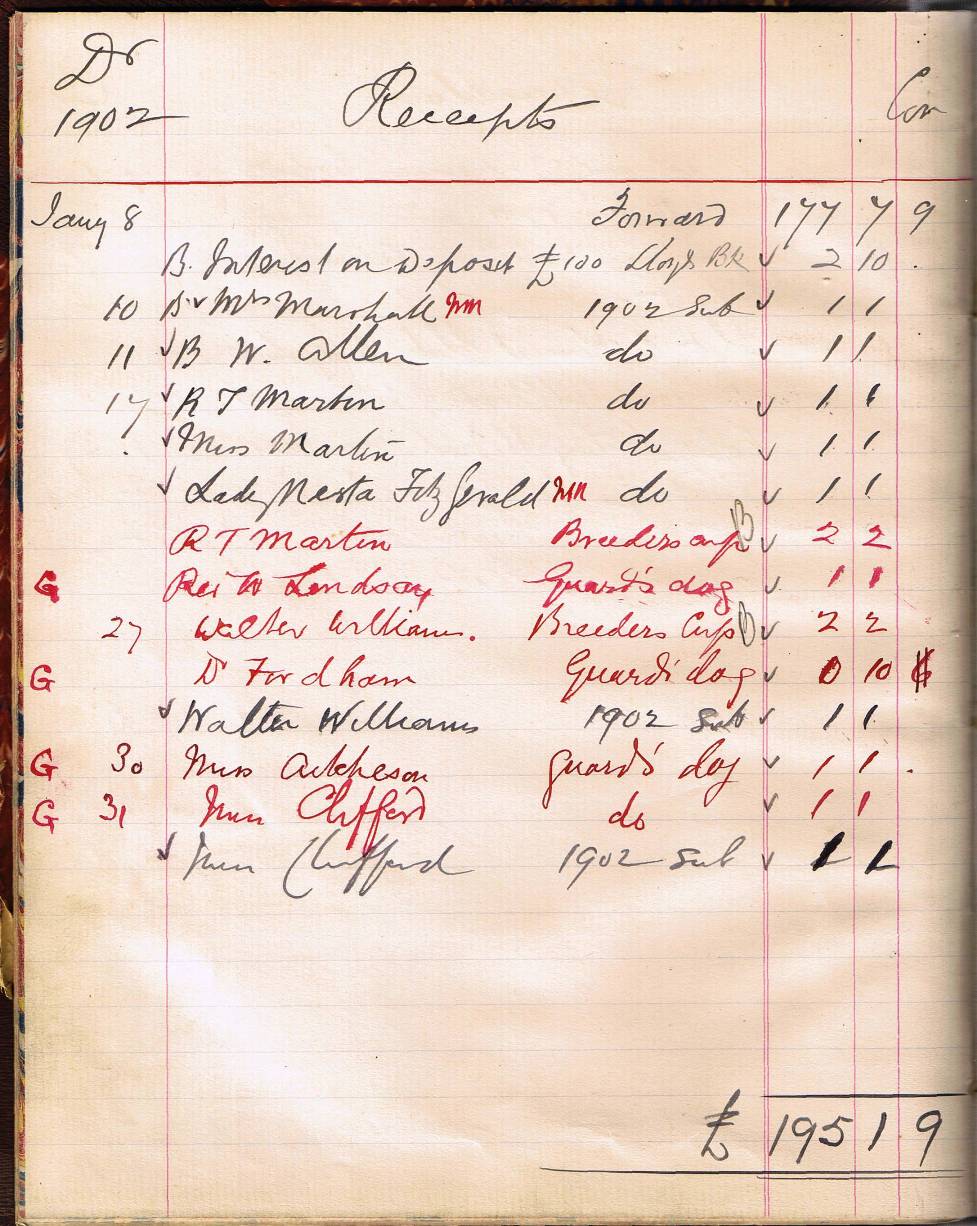 Dr
1902 Receipts Con
Jany 8 Forward 177 7 9
B. Interest on Deposit £100 Lloyds Bk ✓ 2 10 .
10 B ✓ Mrs Marshall NM 1902 Sub ✓ 1 1
11 ✓ B W. Allen do ✓ 1 1
17 ✓ R T Martin do ✓ 1 1
. ✓ Miss Martin do ✓ 1 1
✓ Lady Nesta FitzGerald NM do ✓ 1 1
R T Martin Breeders cup B ✓ 2 2
G Rev W Lindsay Guard's dog ✓ 1 1
27 Walter Williams. Breeders Cup B ✓ 2 2
G D Fordham Guard's dog ✓ 0 10
✓ Walter Williams 1902 Sub ✓ 1 1
G 30 Miss Aitcheson guard's dog ✓ 1 1 .
G 31 Miss Clifford do ✓ 1 1
✓ Miss Clifford 1902 Sub ✓ 1 1
£ 195 1 9